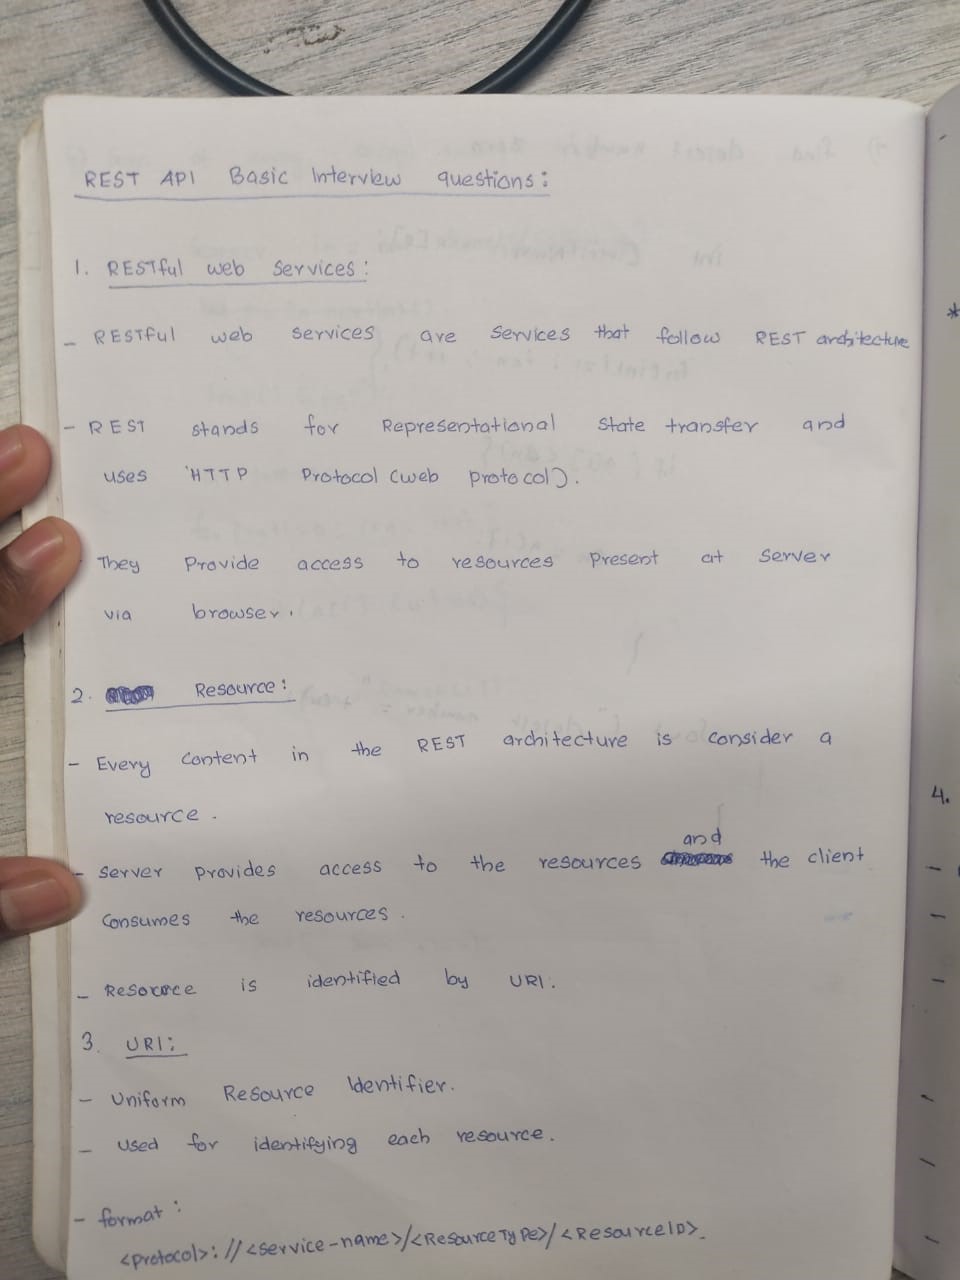 REST API Basic Interview questions:
1. RESTful web services:
- RESTful web services are services that follow REST architecture
- REST stands for Representational State transfer and
uses 'HTTP Protocol (web protocol).
They Provide access to resources Present at server
via browser.
2. Resource:
- Every content in the REST architecture is consider a
resource.
- Server provides access to the resources and the client
consumes the resources.
- Resource is identified by URI.
3. URI:
- Uniform Resource Identifier.
- used for identifying each resource.
- format:
<protocol>://<service-name>/<Resource Type>/<ResourceID>.
*
4.